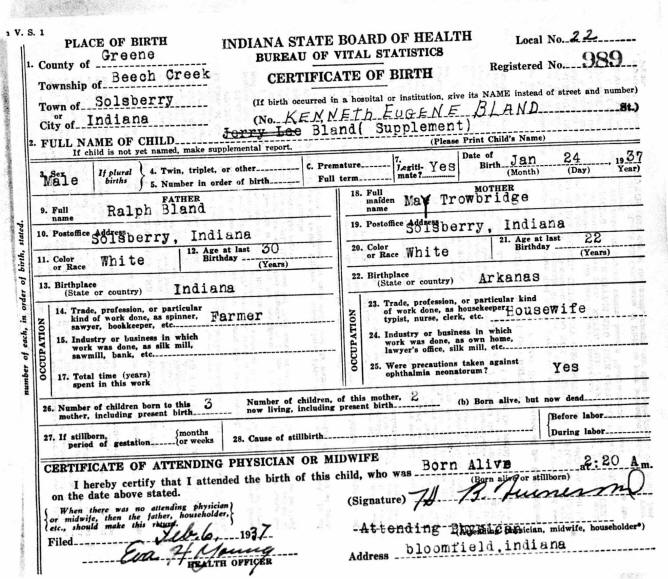 V. S. 1
PLACE OF BIRTH
INDIANA STATE BOARD OF HEALTH
Local No. 22
BUREAU OF VITAL STATISTICS
Registered No. 989
CERTIFICATE OF BIRTH
1. County of Greene
Township of Beech Creek
Town of Solsberry
or
City of Indiana
(If birth occurred in a hospital or institution, give its NAME instead of street and number)
(No. KENNETH EUGENE BLAND St.)
2. FULL NAME OF CHILD Jerry Lee Bland( Supplement)
If child is not yet named, make supplemental report. (Please Print Child's Name)
3. Sex Male
If plural births
4. Twin, triplet, or other
5. Number in order of birth
C. Premature
Full term
7. Legiti- mate? Yes
Date of Birth Jan 24 1937
(Month) (Day) Year)
FATHER
9. Full name Ralph Bland
10. Postoffice Address Solsberry, Indiana
11. Color or Race White
12. Age at last Birthday 30 (Years)
13. Birthplace (State or country) Indiana
OCCUPATION
14. Trade, profession, or particular kind of work done, as spinner, sawyer, bookkeeper, etc. Farmer
15. Industry or business in which work was done, as silk mill, sawmill, bank, etc.
17. Total time (years) spent in this work
MOTHER
18. Full maiden name May Trowbridge
19. Postoffice Address Solsberry, Indiana
20. Color or Race White
21. Age at last Birthday 22 (Years)
22. Birthplace (State or country) Arkanas
OCCUPATION
23. Trade, profession, or particular kind of work done, as housekeeper, typist, nurse, clerk, etc. Housewife
24. Industry or business in which work was done, as own home, lawyer's office, silk mill, etc.
25. Were precautions taken against ophthalmia neonatorum? Yes
number of each, in order of birth, stated.
26. Number of children born to this mother, including present birth 3
Number of children, of this mother, now living, including present birth 2
(b) Born alive, but now dead
27. If stillborn, period of gestation {months or weeks
28. Cause of stillbirth
{Before labor
During labor
CERTIFICATE OF ATTENDING PHYSICIAN OR MIDWIFE
I hereby certify that I attended the birth of this child, who was Born Alive at 2:20 A m.
on the date above stated. (Born alive or stillborn)
{When there was no attending physician or midwife, then the father, householder, etc., should make this return.}
(Signature) H. B.
Filed Feb. 6, 1937
Attending Physician
(Attending physician, midwife, householder*)
Eva H. Young
HEALTH OFFICER
Address bloomfield,indiana